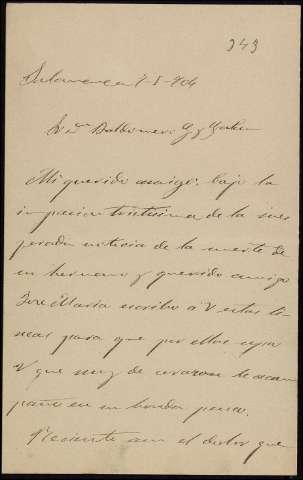 343
Salamanca 7-I-904
Sr Dn Baldomero G. y Galán
Mi querido amigo: bajo la
impresion tristísima de la ines
perada noticia de la muerte de
su hermano y querido amigo
José María escribo á V estas lí-
neas para que por ellas sepa
V que muy de corazon le acom
paño en su honda pena.
Reciente aun el dolor que